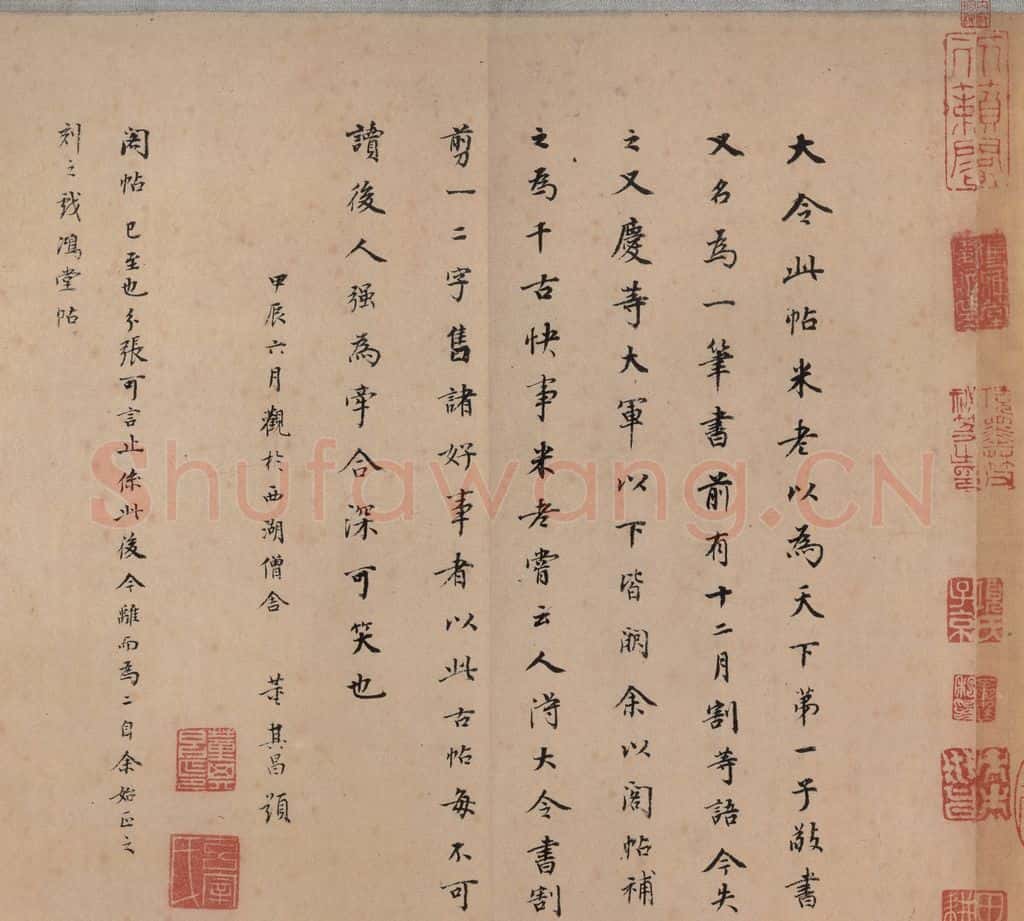 大令此帖米老以為天下第一子敬書
又名為一筆書前有十二月割等語今失
之又慶等大軍以下皆闕余以閣帖補
之為千古快事米老嘗云人得大令書割
剪一二字售諸好事者以此古帖每不可
讀後人强為牽合深可笑也
甲辰六月觀於西湖僧舍 董其昌題
閣帖已至也分張可言止係此後今離而為二自余始正之
刻之戏鴻堂帖
Shufawang.CN
董其昌印
子京